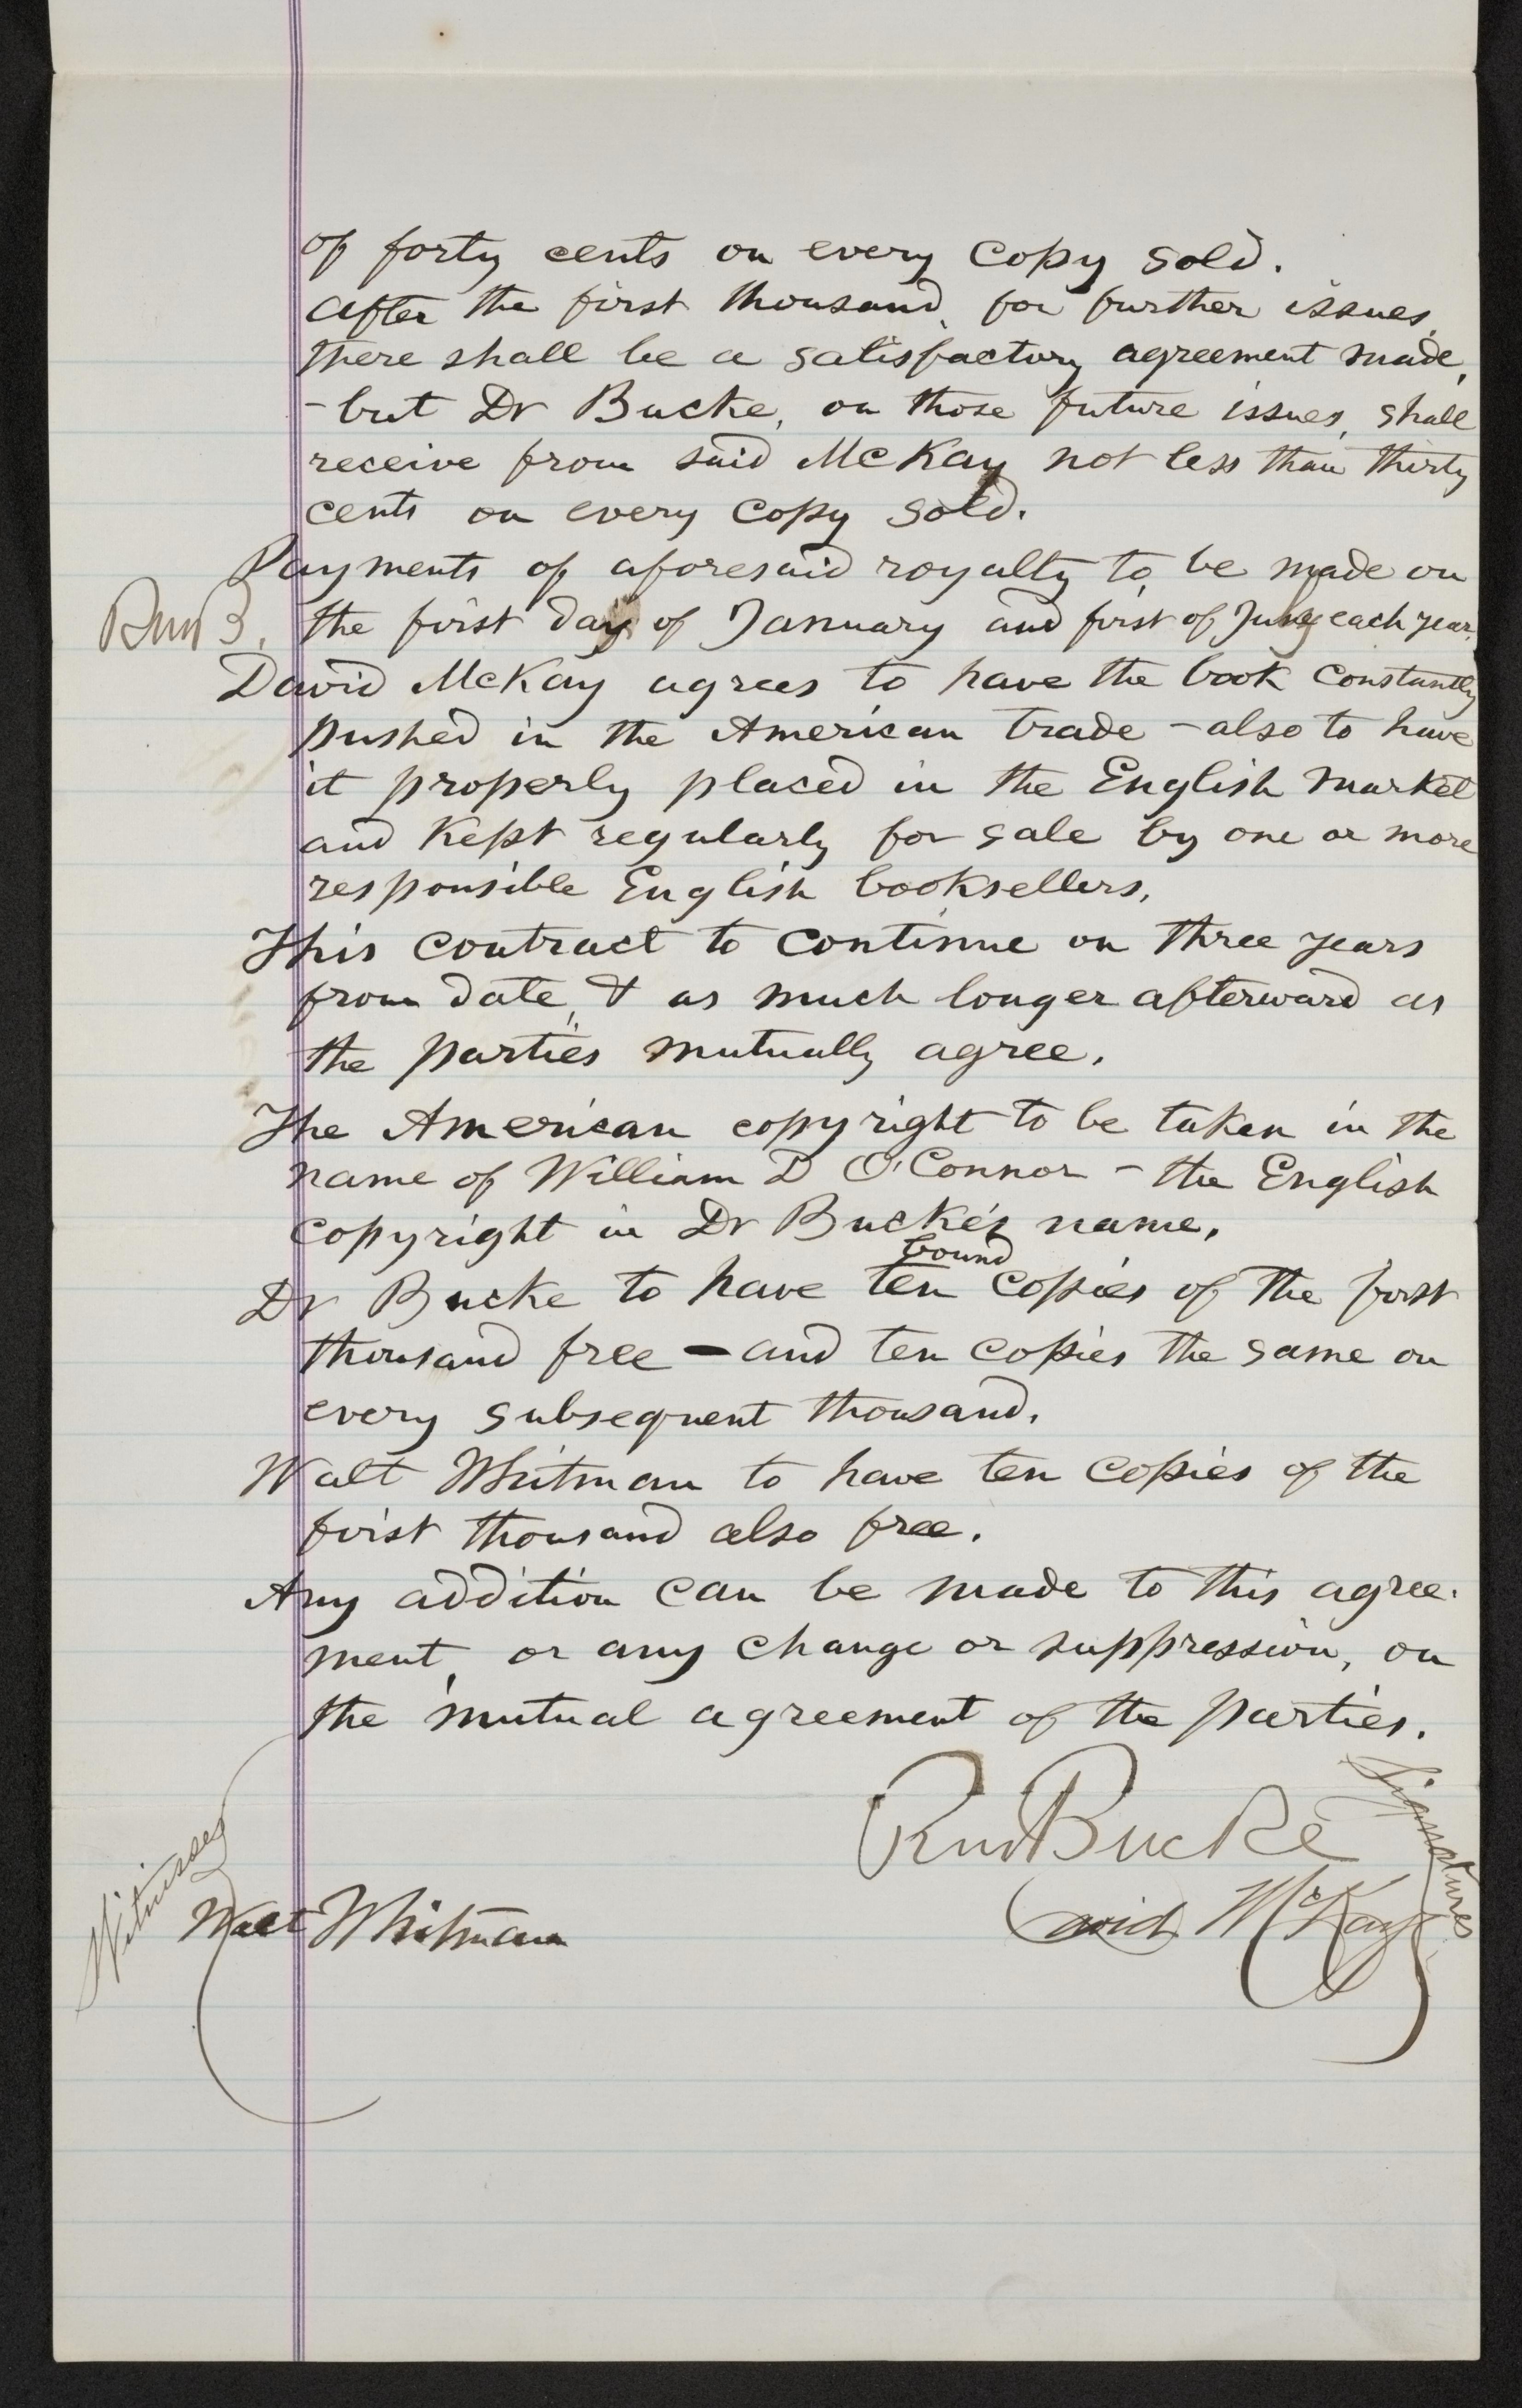 of forty cents on every copy sold.
After the first thousand, for further issues,
there shall be a satisfactory agreement made,
– but Dr Bucke, on those future issues, shall
receive from said McKay not less than thirty
cents on every copy sold.
Payments of aforesaid royalty to be made on
RMB. the first day of January and first of July each year.
David McKay agrees to have the book constantly
pushed in the American trade – also to have
it properly placed in the English market
and kept regularly for sale by one or more
responsible English booksellers.
This contract to continue on three years
from date, & as much longer afterward as
the parties mutually agree.
The American copyright to be taken in the
name of William D O'Connor – the English
copyright in Dr Bucke's name.
bound
Dr Bucke to have ten copies of the first
thousand free – and ten copies the same on
every subsequent thousand.
Walt Whitman to have ten copies of the
first thousand also free.
Any addition can be made to this agree-
ment, or any change or suppression, on
the mutual agreement of the parties.
Signatures
RM Bucke
Witnesses
Walt Whitman
David McKay